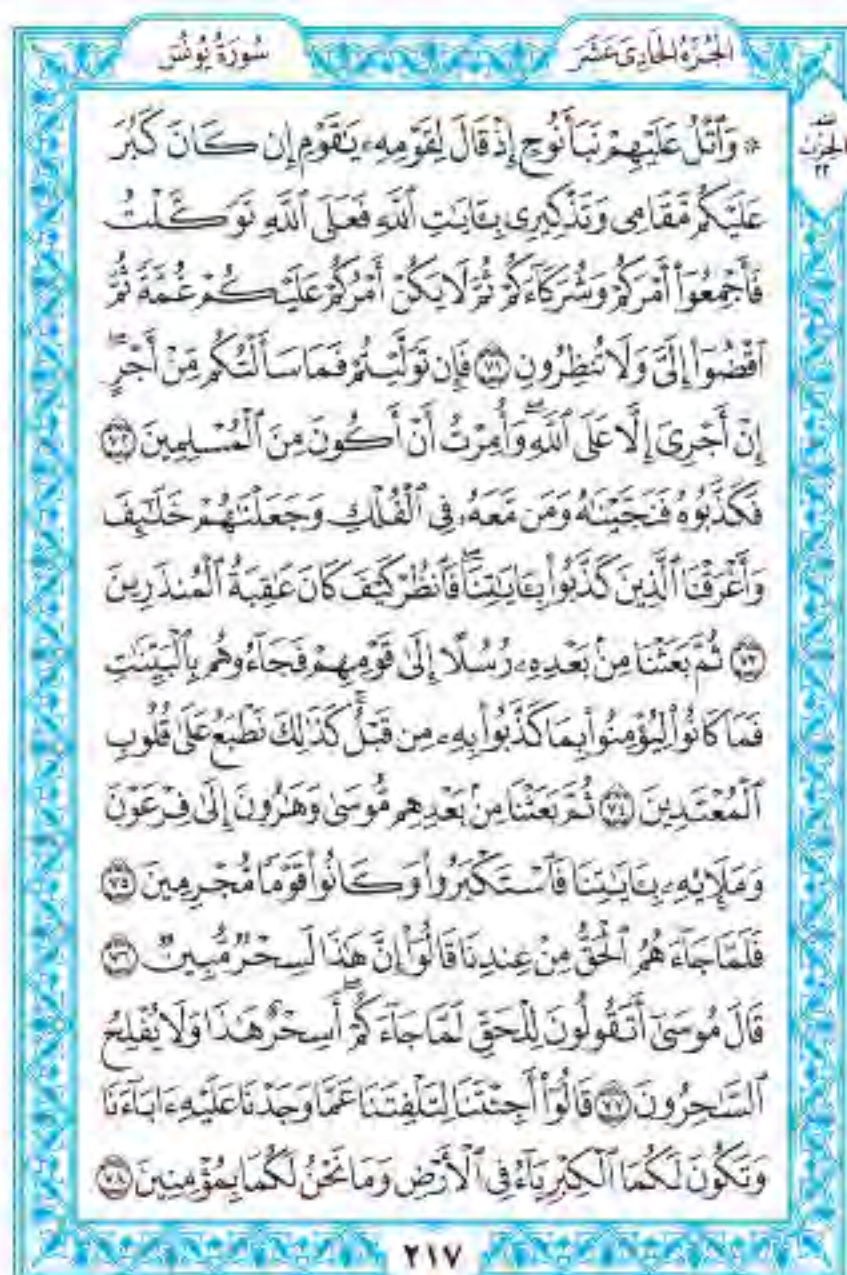 سُورَةُ يُونُسَ
الجُزْءُ الحَادِي عَشَرَ
نصف
الحزب
٢٢
۞ وَٱتْلُ عَلَيْهِمْ نَبَأَ نُوحٍ إِذْ قَالَ لِقَوْمِهِۦ يَٰقَوْمِ إِن كَانَ كَبُرَ
عَلَيْكُم مَّقَامِى وَتَذْكِيرِى بِـَٔايَٰتِ ٱللَّهِ فَعَلَى ٱللَّهِ تَوَكَّلْتُ
فَأَجْمِعُوٓا۟ أَمْرَكُمْ وَشُرَكَآءَكُمْ ثُمَّ لَا يَكُنْ أَمْرُكُمْ عَلَيْكُمْ غُمَّةً ثُمَّ
ٱقْضُوٓا۟ إِلَىَّ وَلَا تُنظِرُونِ ٧١ فَإِن تَوَلَّيْتُمْ فَمَا سَأَلْتُكُم مِّنْ أَجْرٍ ۖ
إِنْ أَجْرِىَ إِلَّا عَلَى ٱللَّهِ ۖ وَأُمِرْتُ أَنْ أَكُونَ مِنَ ٱلْمُسْلِمِينَ ٧٢
فَكَذَّبُوهُ فَنَجَّيْنَٰهُ وَمَن مَّعَهُۥ فِى ٱلْفُلْكِ وَجَعَلْنَٰهُمْ خَلَٰٓئِفَ
وَأَغْرَقْنَا ٱلَّذِينَ كَذَّبُوا۟ بِـَٔايَٰتِنَا ۖ فَٱنظُرْ كَيْفَ كَانَ عَٰقِبَةُ ٱلْمُنذَرِينَ
٧٣ ثُمَّ بَعَثْنَا مِنۢ بَعْدِهِۦ رُسُلًا إِلَىٰ قَوْمِهِمْ فَجَآءُوهُم بِٱلْبَيِّنَٰتِ
فَمَا كَانُوا۟ لِيُؤْمِنُوا۟ بِمَا كَذَّبُوا۟ بِهِۦ مِن قَبْلُ ۚ كَذَٰلِكَ نَطْبَعُ عَلَىٰ قُلُوبِ
ٱلْمُعْتَدِينَ ٧٤ ثُمَّ بَعَثْنَا مِنۢ بَعْدِهِم مُّوسَىٰ وَهَٰرُونَ إِلَىٰ فِرْعَوْنَ
وَمَلَإِيْهِۦ بِـَٔايَٰتِنَا فَٱسْتَكْبَرُوا۟ وَكَانُوا۟ قَوْمًا مُّجْرِمِينَ ٧٥
فَلَمَّا جَآءَهُمُ ٱلْحَقُّ مِنْ عِندِنَا قَالُوٓا۟ إِنَّ هَٰذَا لَسِحْرٌ مُّبِينٌ ٧٦
قَالَ مُوسَىٰٓ أَتَقُولُونَ لِلْحَقِّ لَمَّا جَآءَكُمْ ۖ أَسِحْرٌ هَٰذَا وَلَا يُفْلِحُ
ٱلسَّٰحِرُونَ ٧٧ قَالُوٓا۟ أَجِئْتَنَا لِتَلْفِتَنَا عَمَّا وَجَدْنَا عَلَيْهِ ءَابَآءَنَا
وَتَكُونَ لَكُمَا ٱلْكِبْرِيَآءُ فِى ٱلْأَرْضِ وَمَا نَحْنُ لَكُمَا بِمُؤْمِنِينَ ٧٨
٢١٧